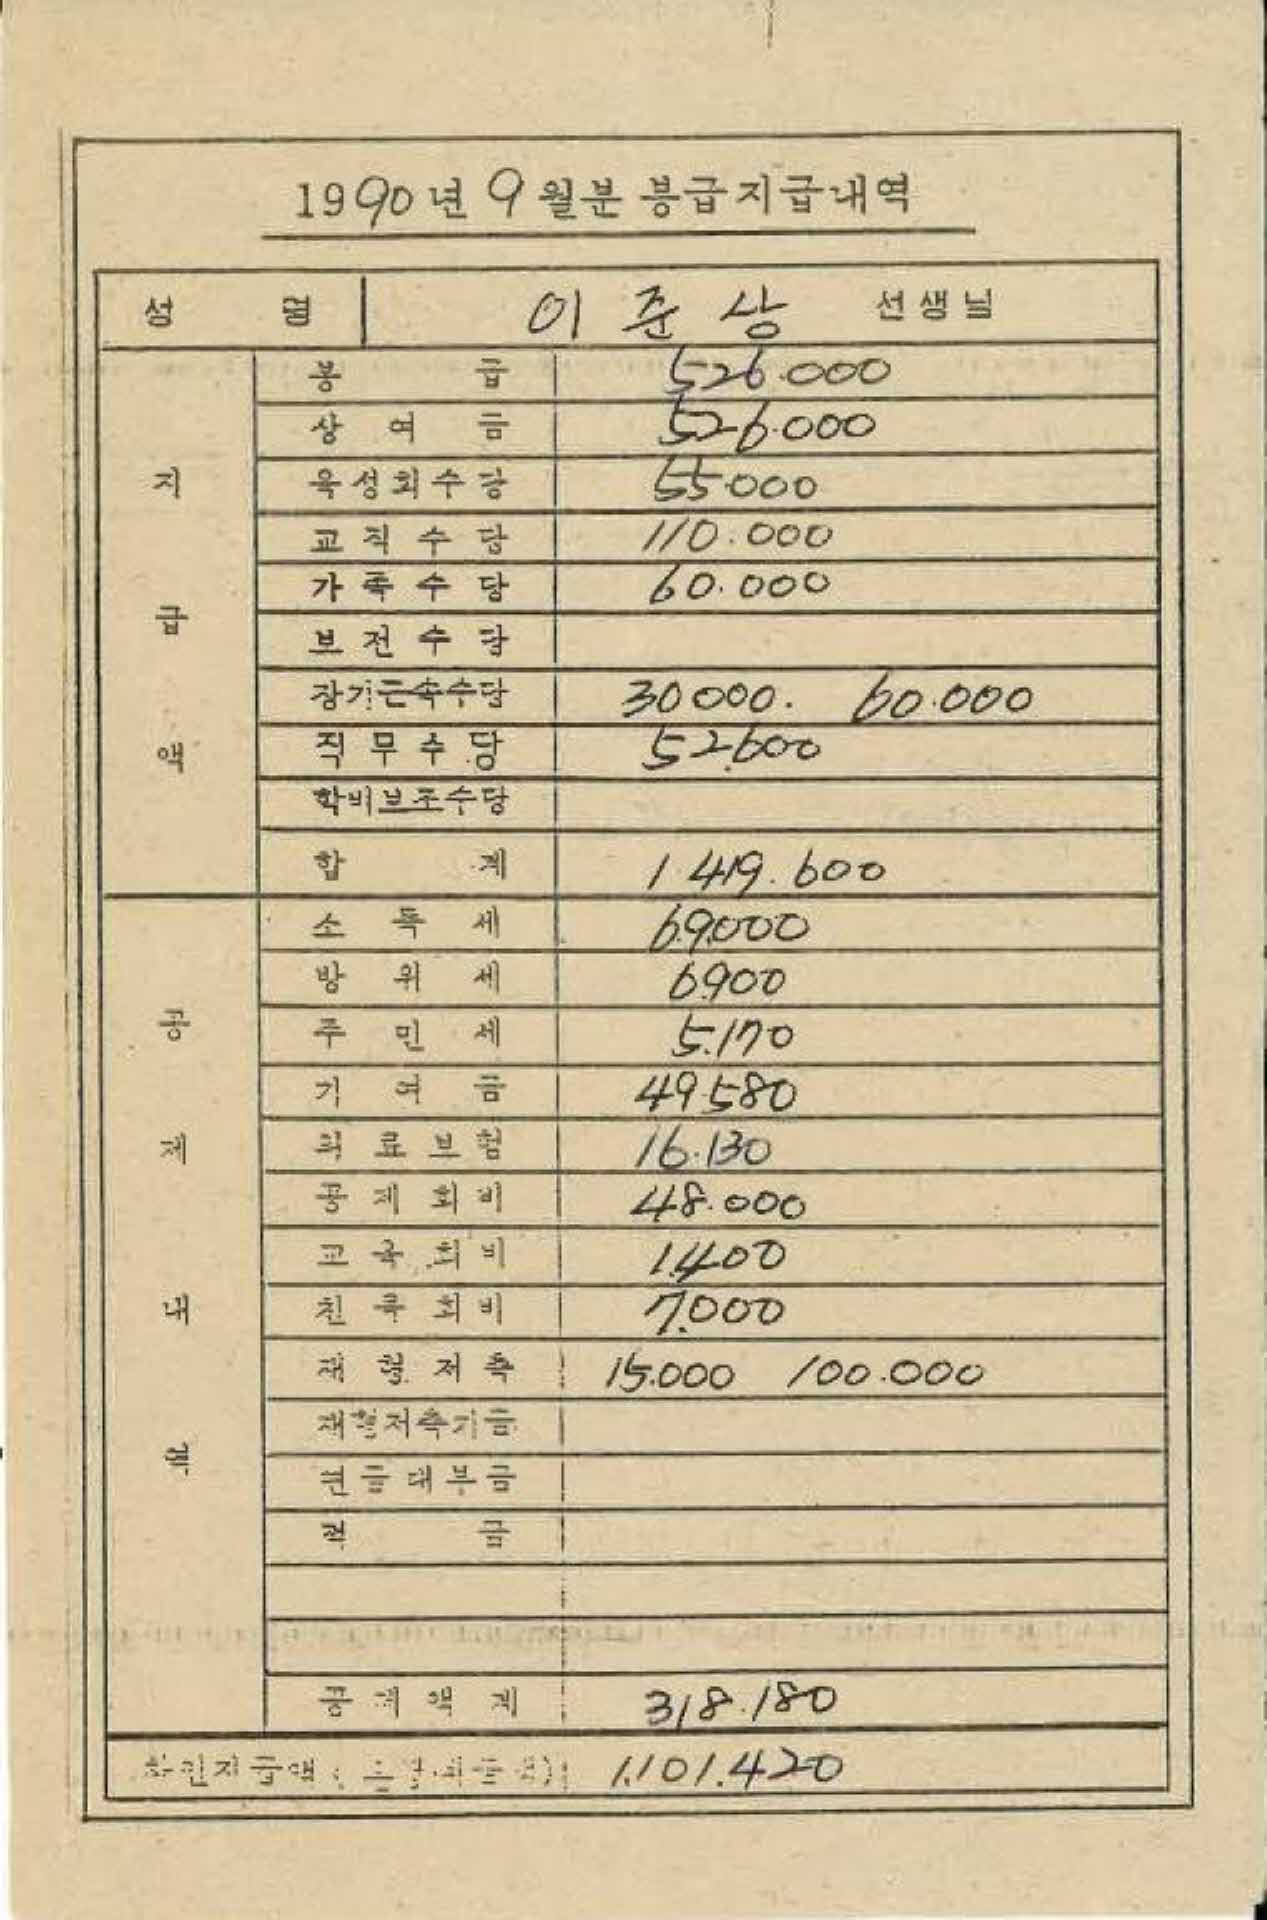 1990년 9월분 봉급지급내역
성 명 이 준 상 선생님
지 급 액
봉 급 526.000
상 여 금 526.000
육성회수당 55.000
교 직 수 당 110.000
가 족 수 당 60.000
보 전 수 당
장기근속수당 30000. 60.000
직 무 수 당 52.600
학비보조수당
합 계 1 419.600
공 제 내 역
소 득 세 69.000
방 위 세 6.900
주 민 세 5.170
기 여 금 49580
의 료 보 험 16.130
공 제 회 비 48.000
교 육 회 비 1.400
친 목 회 비 7.000
재 형 저 축 15.000 100.000
재형저축기금
연금대부금
전 금
공 제 액 계 318.180
차인지급액 1.101.420